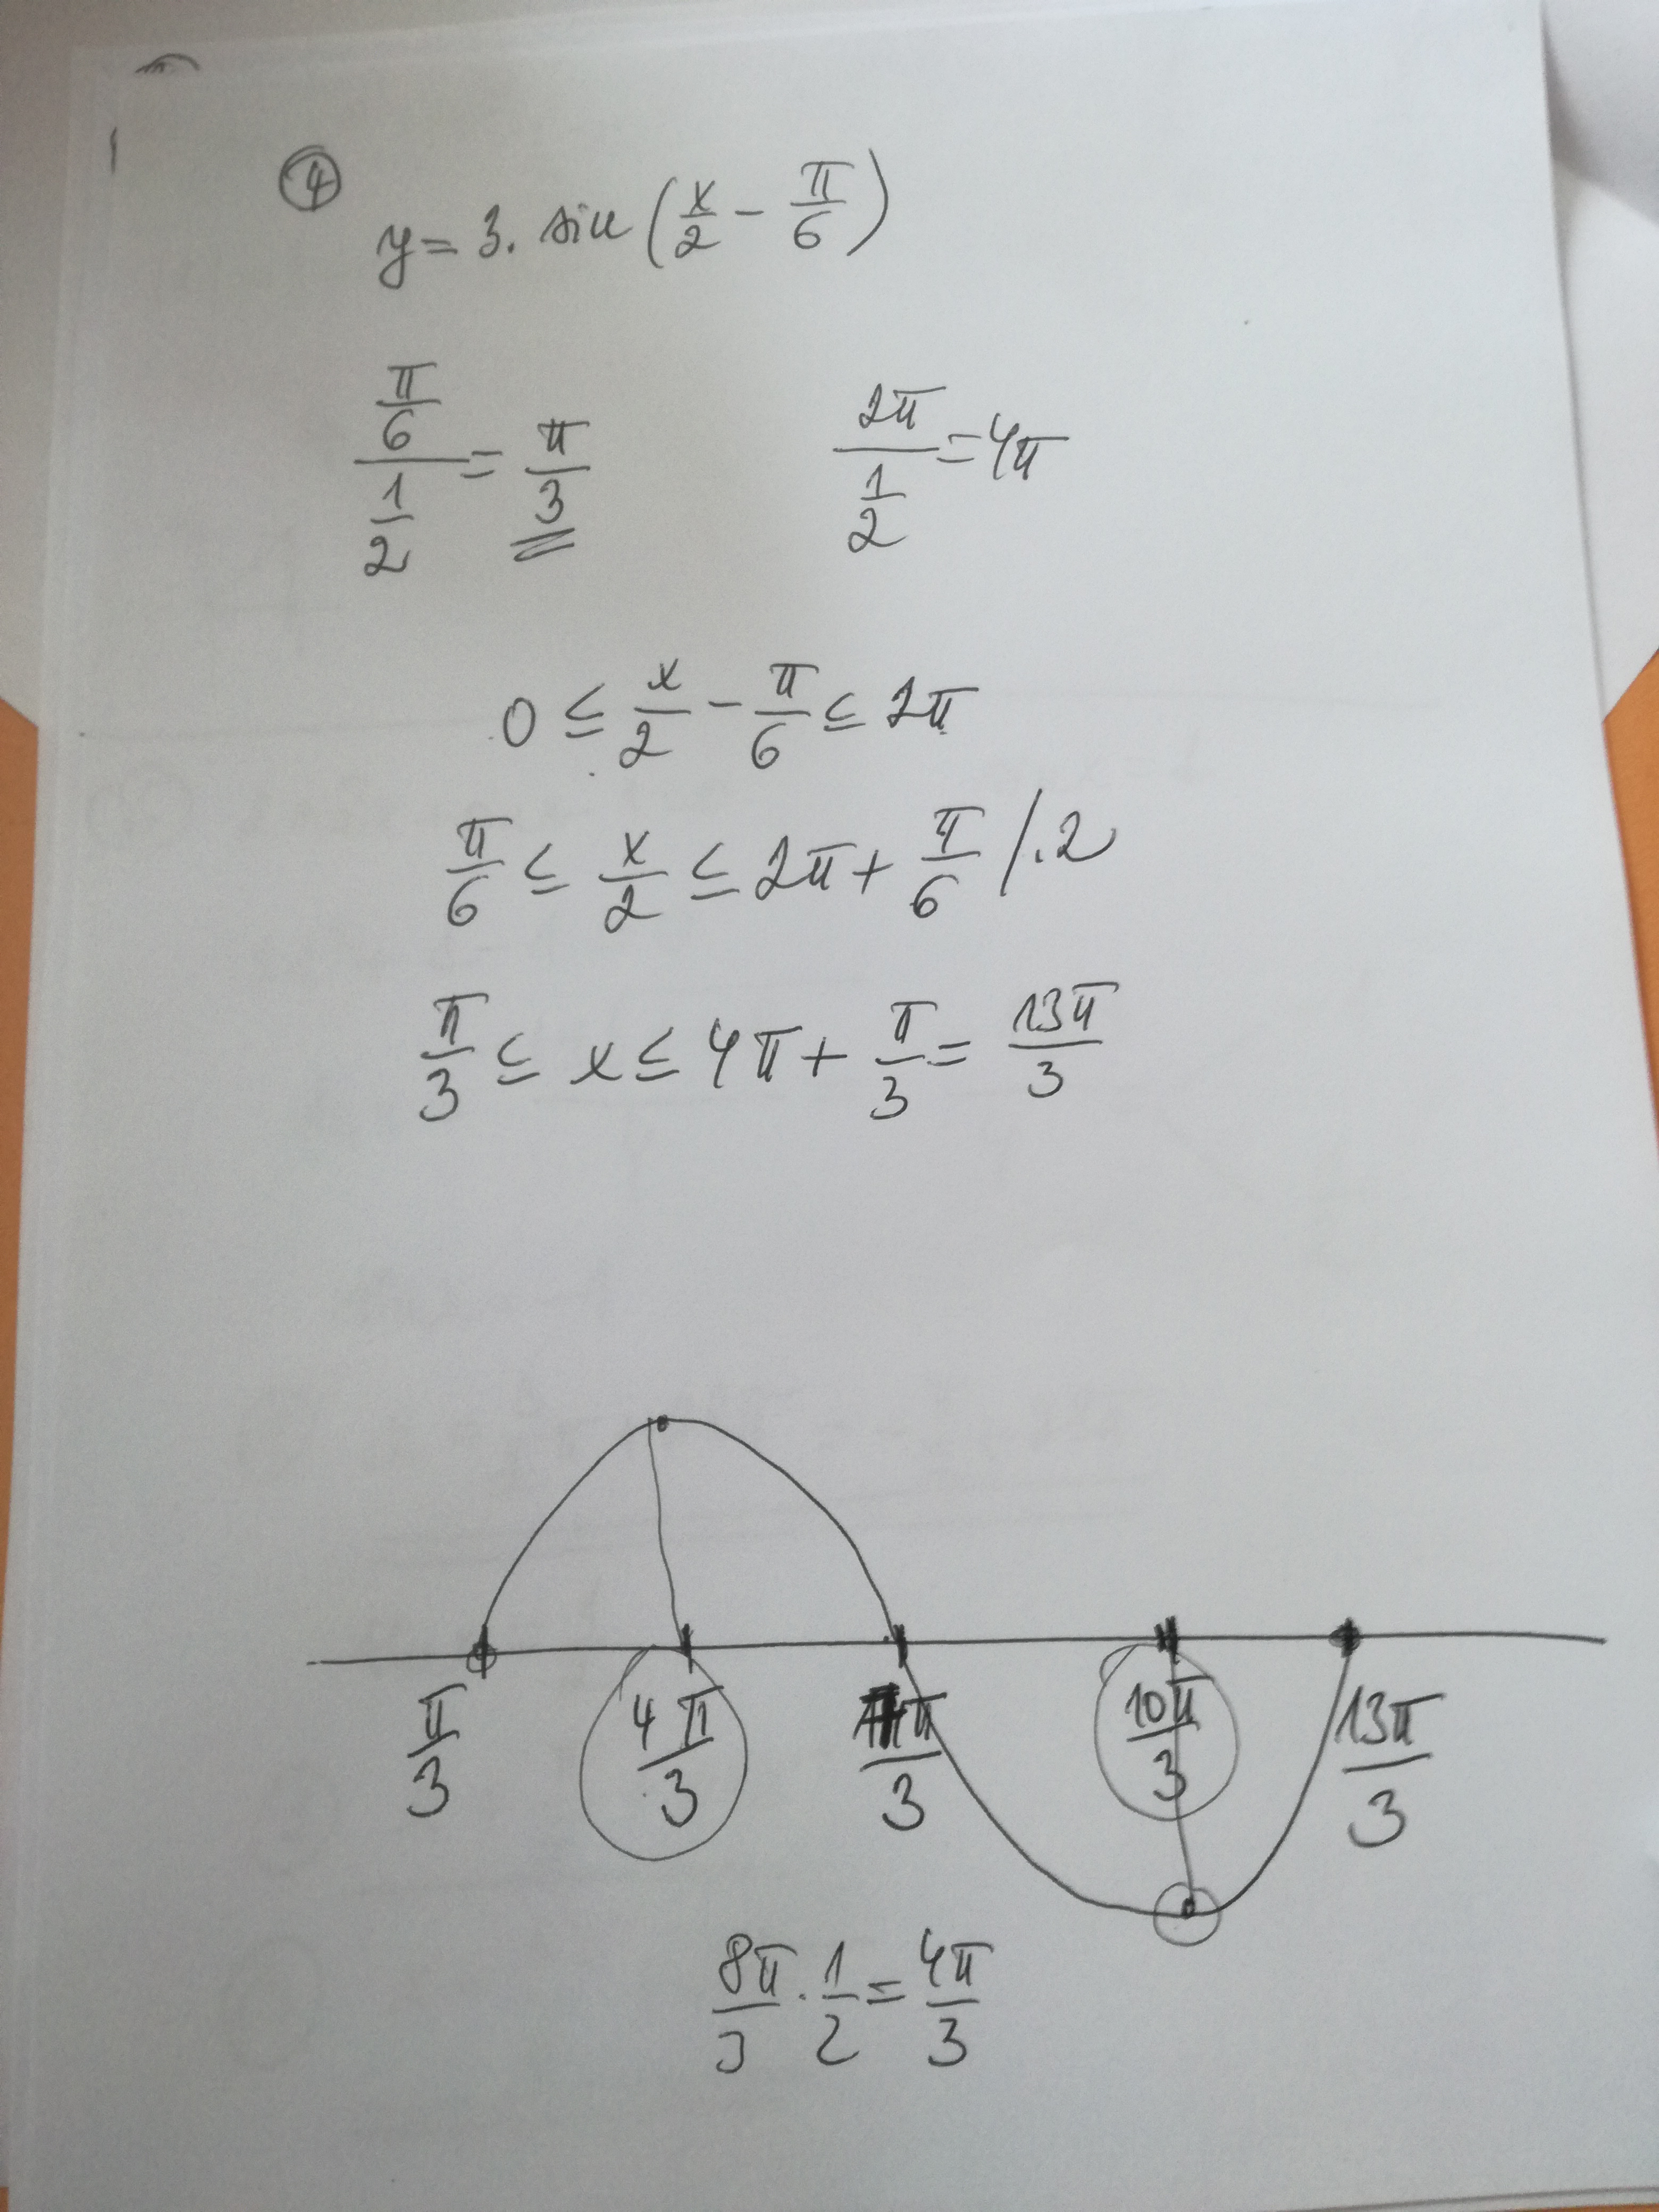 ④
y = 3. sin (x/2 - π/6)
(π/6)/(1/2) = π/3
(2π)/(1/2) = 4π
0 ≤ x/2 - π/6 ≤ 2π
π/6 ≤ x/2 ≤ 2π + π/6 /.2
π/3 ≤ x ≤ 4π + π/3 = 13π/3
π/3 4π/3 π/3 10π/3 13π/3
8π/3 . 1/2 = 4π/3